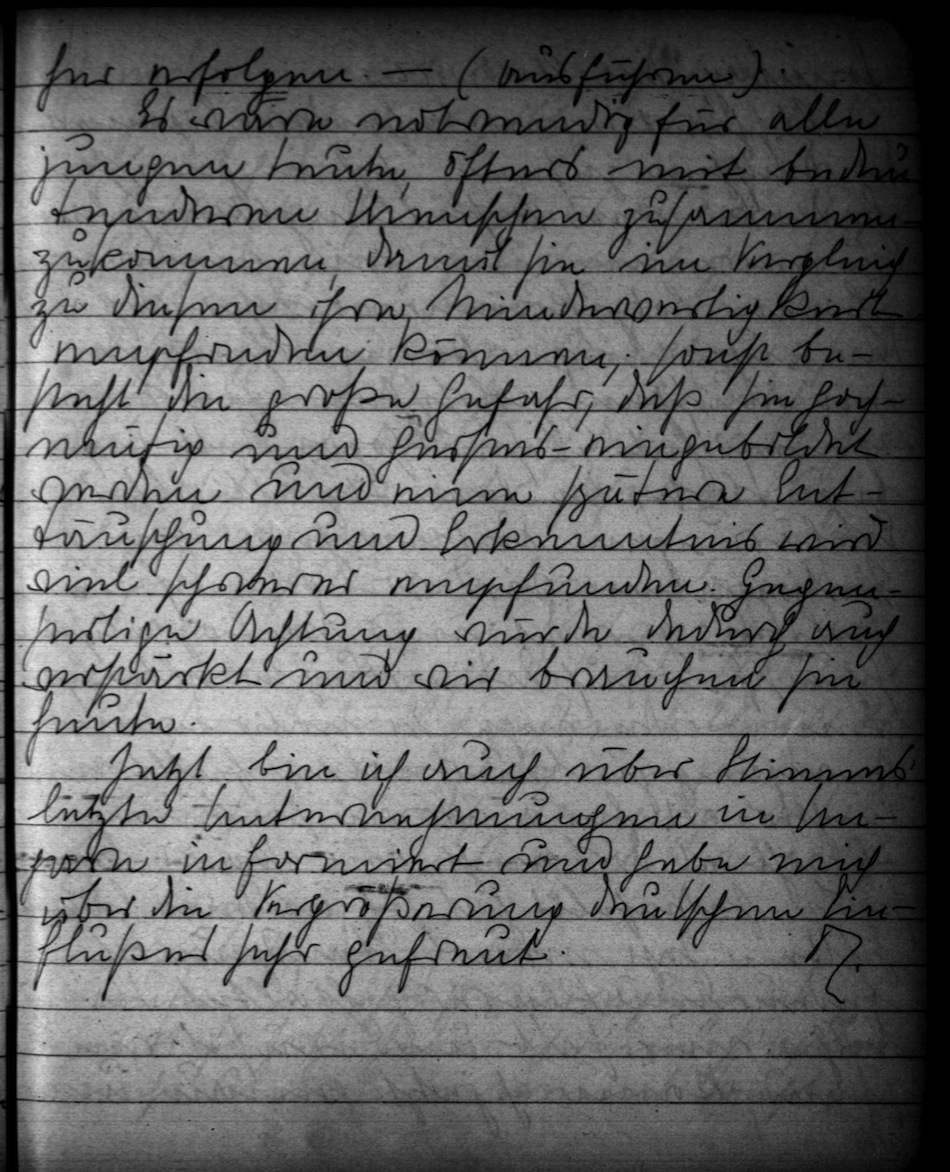 her erfolgen. — (ausführen).
Es wäre notwendig für alle
jungen Leute, öfters mit bedeu
tenderen Menschen zusammen-
zukommen, damit sie im Vergleich
zu diesen ihre Minderwertigkeit
empfinden können, sonst be-
steht die große Gefahr, daß sie hoch-
mütig und eingebildet
werden und eine spätere Ent-
täuschung und Erkenntnis wird
viel schwerer empfunden. Gegen-
seitige Achtung würde dadurch auch
verstärkt und wir brauchen sie
heute.
Jetzt bin ich auch über Stinnes'
letzte Unternehmungen in Un-
garn informiert und habe mich
über die Vergrößerung deutschen Ein-
flußes sehr gefreut.